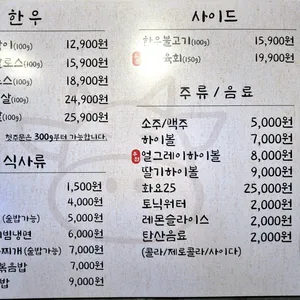 한우
(100g) 12,900원
로스(100g) 15,900원
스(100g) 18,900원
살(100g) 24,900원
(100g) 25,900원
첫주문은 300g부터 가능합니다.
식사류
1,500원
4,000원
(술밥가능) 5,000원
비빔냉면 6,000원
찌개(술밥가능) 7,000원
볶음밥 7,000원
밥 9,000원
사이드
한우불고기(100g) 15,900원
육회(150g) 19,900원
주류/음료
소주/맥주 5,000원
하이볼 7,000원
추천 얼그레이하이볼 8,000원
딸기하이볼 9,000원
화요25 25,000원
토닉워터 2,000원
레몬슬라이스 2,000원
탄산음료 2,000원
(콜라/제로콜라/사이다)